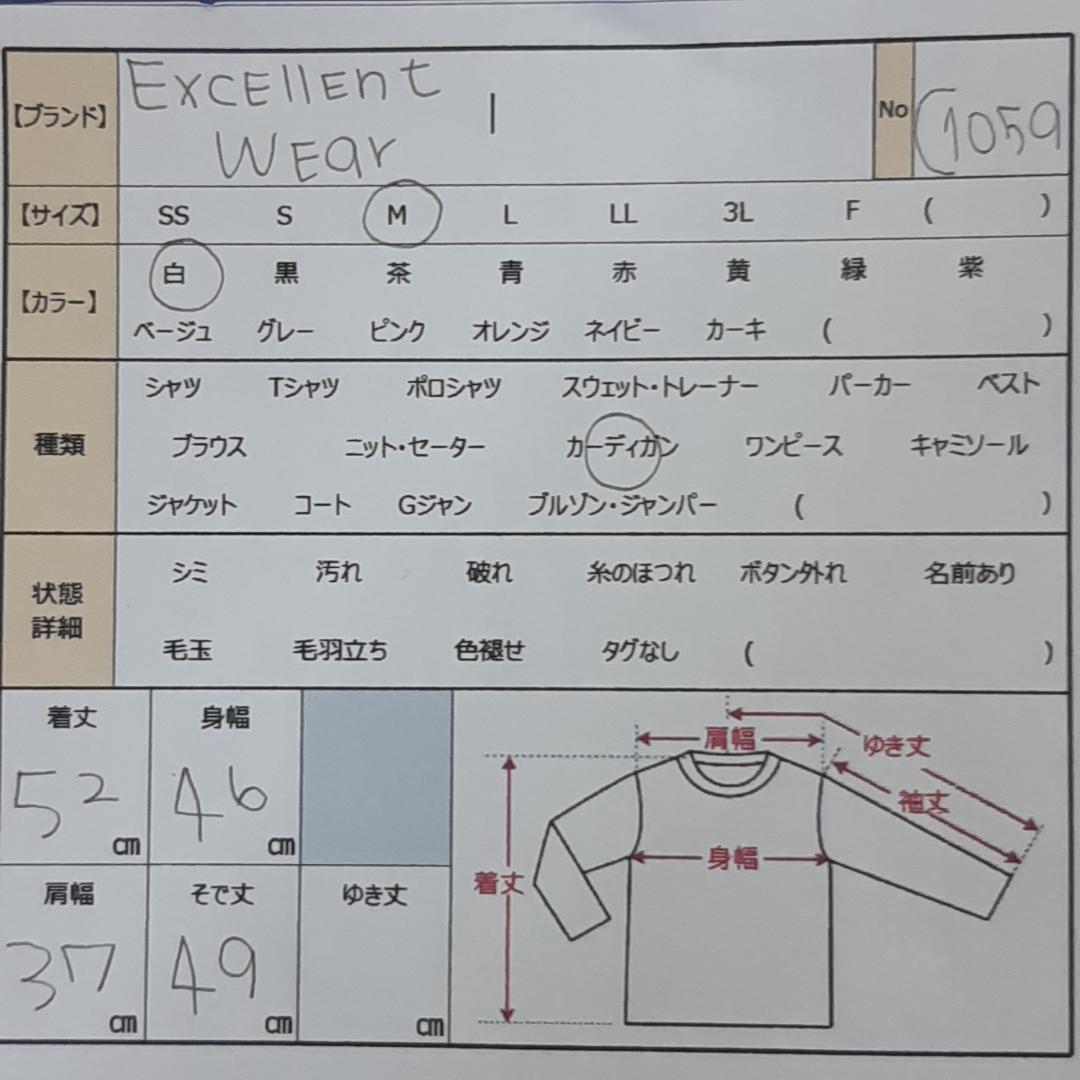 【ブランド】 Excellent No (1059
Wear
【サイズ】 SS S M L LL 3L F ( )
【カラー】 白 黒 茶 青 赤 黄 緑 紫
ベージュ グレー ピンク オレンジ ネイビー カーキ ( )
種類 シャツ Tシャツ ポロシャツ スウェット・トレーナー パーカー ベスト
ブラウス ニット・セーター カーディガン ワンピース キャミソール
ジャケット コート Gジャン ブルゾン・ジャンパー ( )
状態
詳細
シミ 汚れ 破れ 糸のほつれ ボタン外れ 名前あり
毛玉 毛羽立ち 色褪せ タグなし ( )
着丈 身幅
52 cm 46 cm
肩幅 そで丈 ゆき丈
37 cm 49 cm cm
肩幅
ゆき丈
袖丈
身幅
着丈